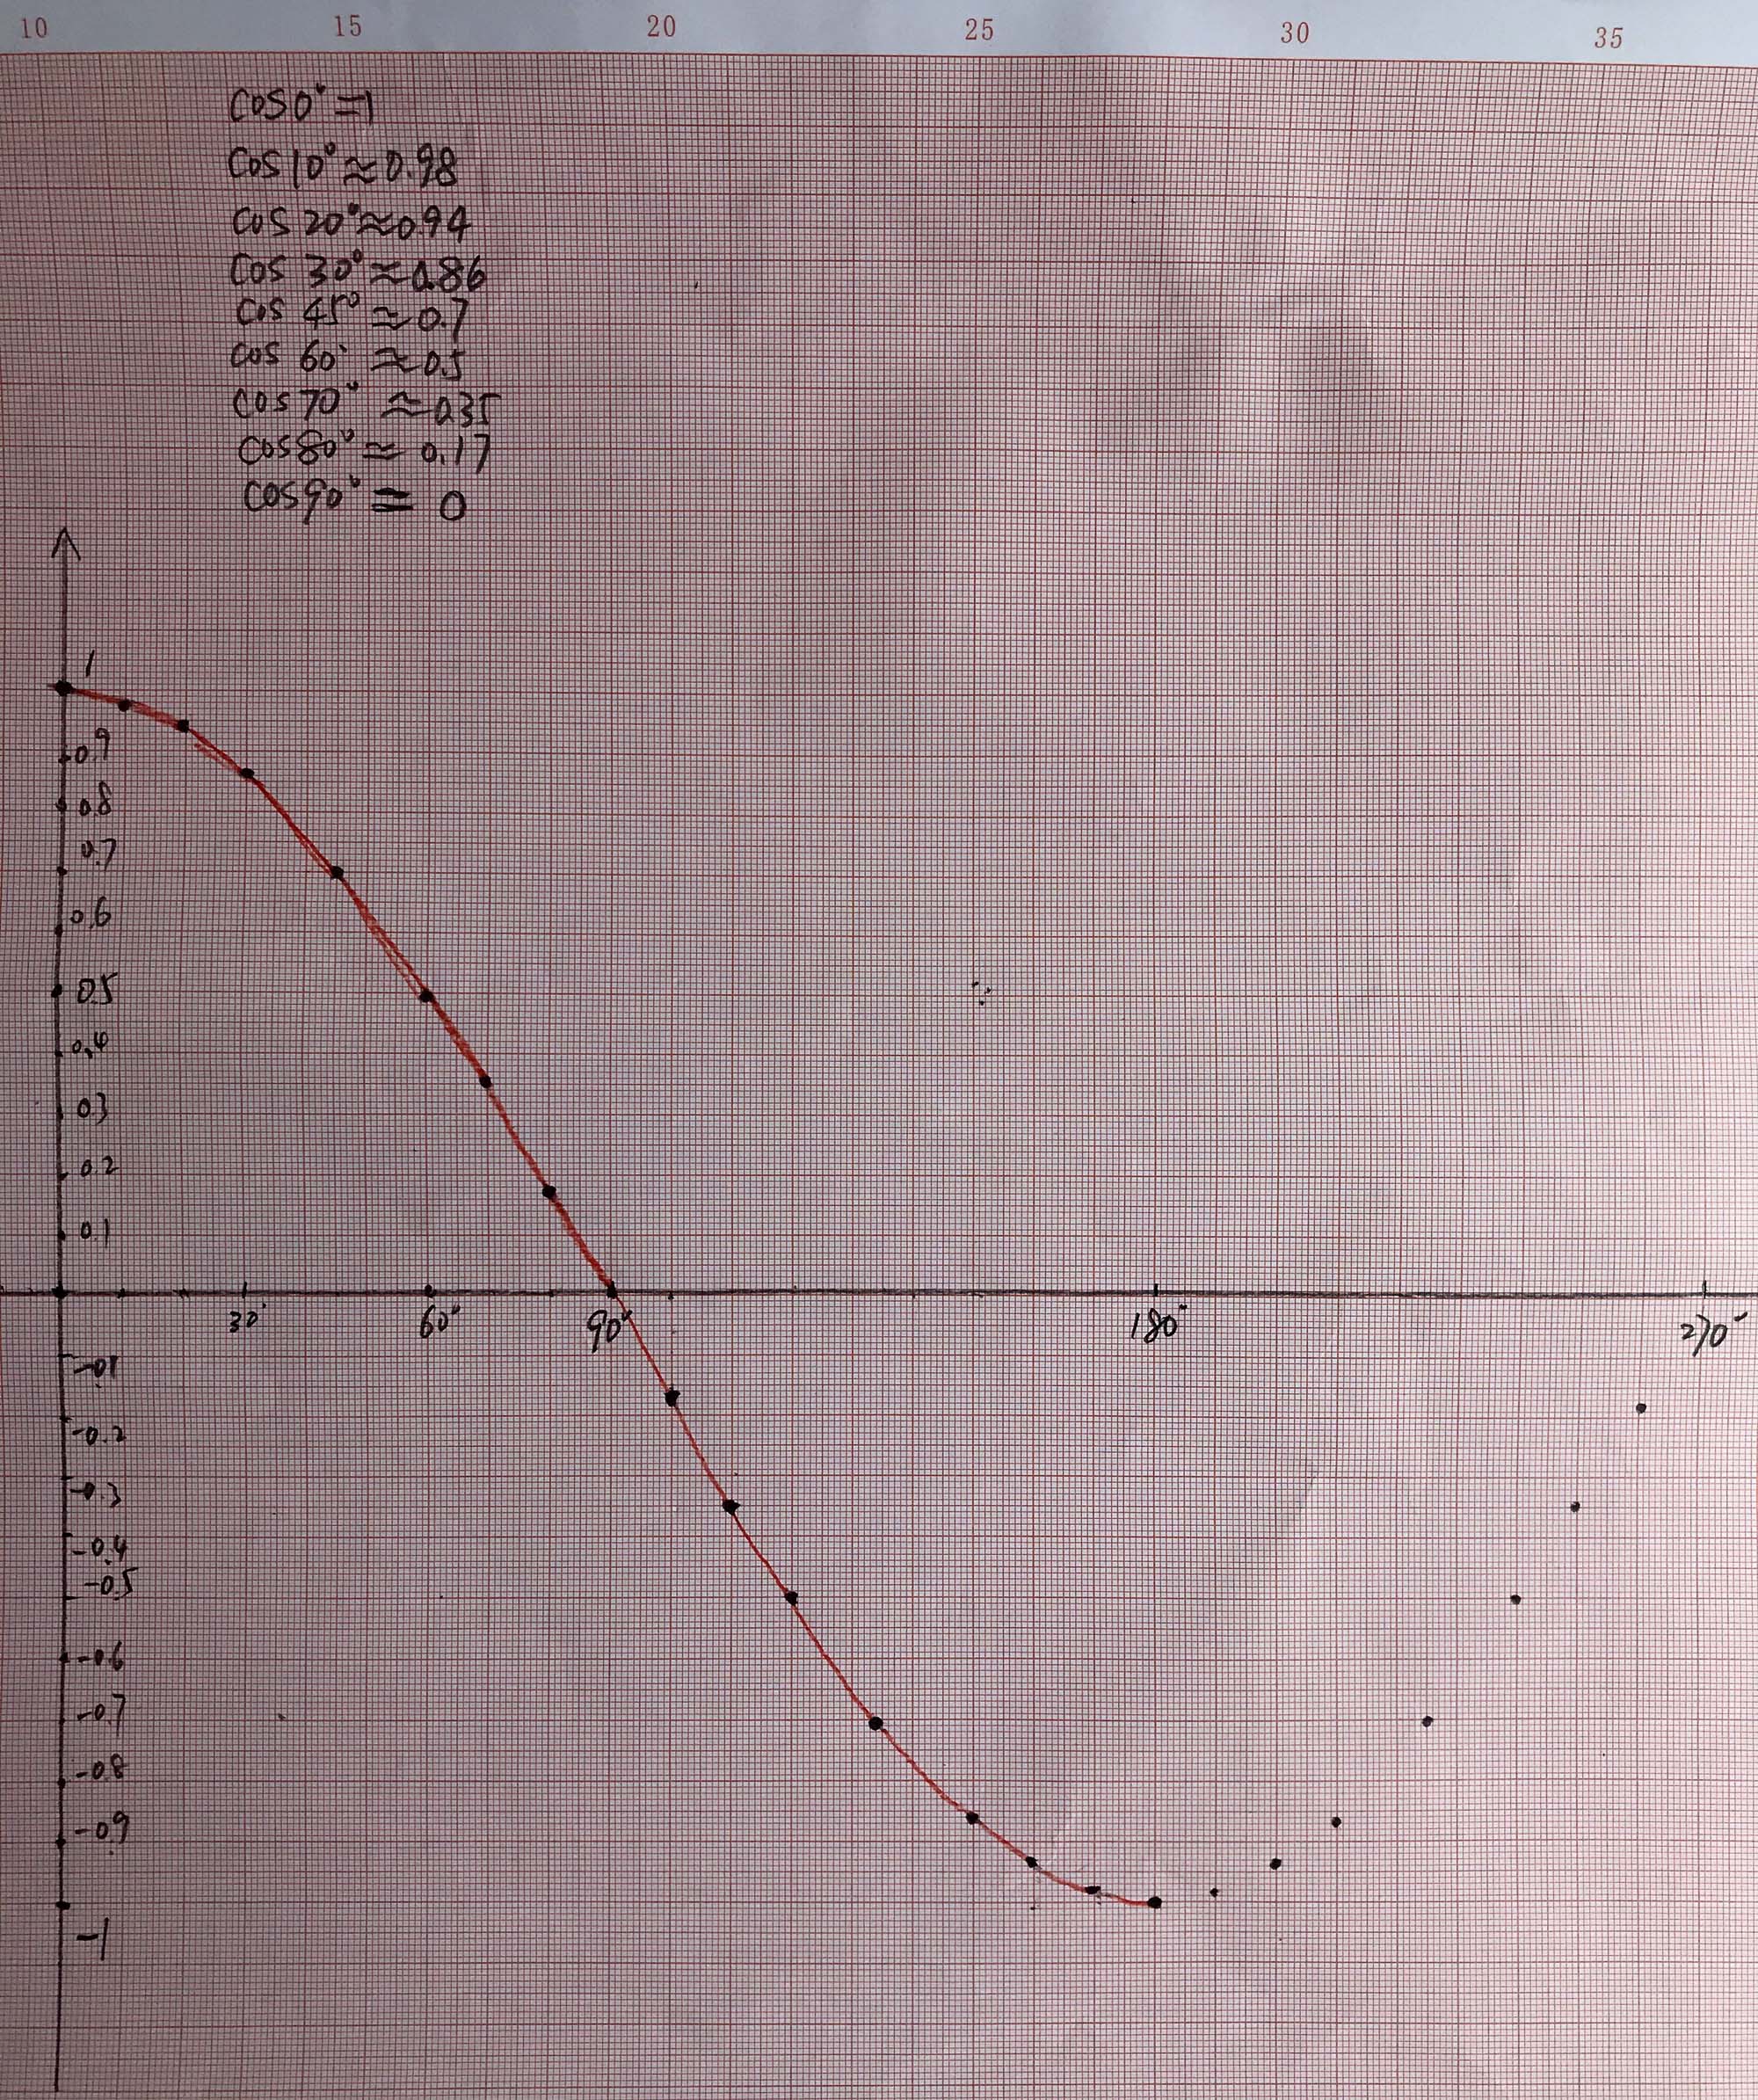 10 15 20 25 30 35
cos0°=1
cos10°≈0.98
cos20°≈0.94
cos30°≈0.86
cos45°≈0.7
cos60°≈0.5
cos70°≈0.35
cos80°≈0.17
cos90°=0
1
0.9
0.8
0.7
0.6
0.5
0.4
0.3
0.2
0.1
30° 60° 90° 180° 270°
-0.1
-0.2
-0.3
-0.4
-0.5
-0.6
-0.7
-0.8
-0.9
-1